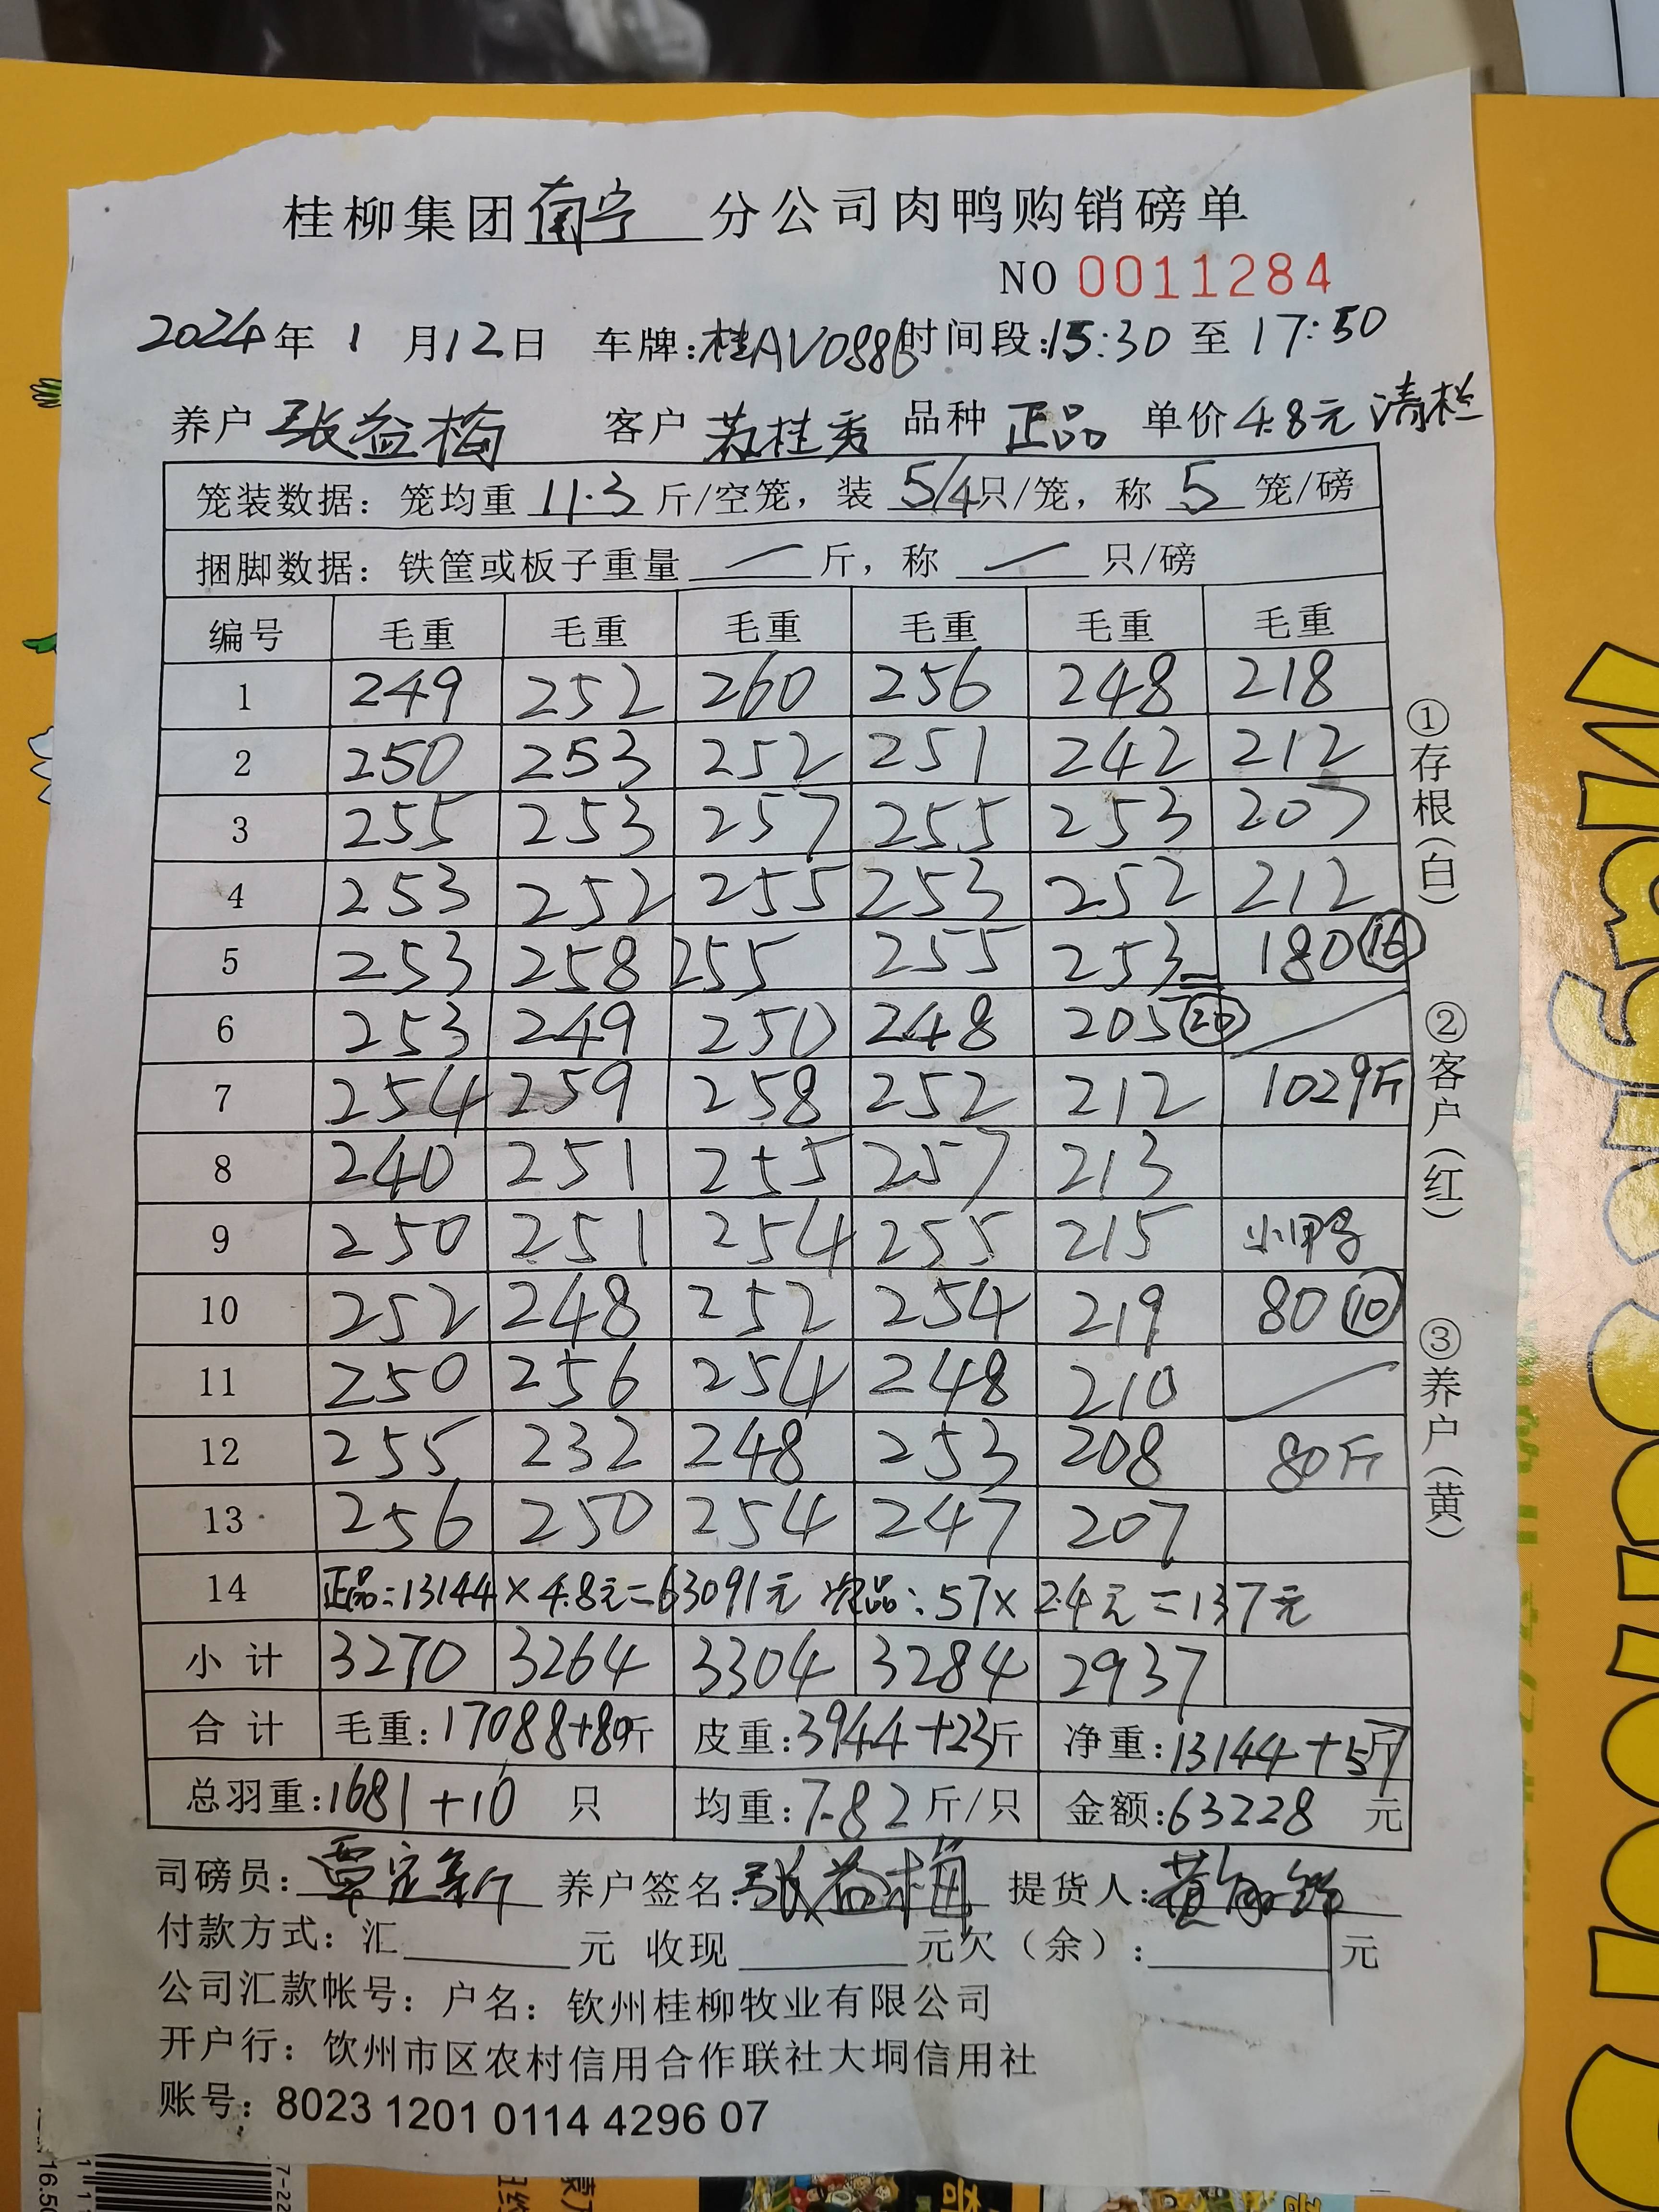 桂柳集团南宁分公司肉鸭购销磅单
NO 0011284
2024年 1 月12日 车牌:桂AV0886时间段:15:30 至 17:50
养户 张益梅 客户 苏桂秀 品种 正品 单价 4.8元 清栏
笼装数据：笼均重 11.3 斤/空笼，装 5/4只/笼，称 5 笼/磅
捆脚数据：铁筐或板子重量 — 斤，称 — 只/磅
编号 毛重 毛重 毛重 毛重 毛重 毛重
1 249 252 260 256 248 218
2 250 253 252 251 242 212
3 255 253 257 255 253 207
4 253 252 255 253 252 212
5 253 258 255 255 253 180 ⑯
6 253 249 250 248 205 ⑳
7 254 259 258 252 212 1029斤
8 240 251 255 257 213
9 250 251 254 255 215 小鸭
10 252 248 252 254 219 80 ⑩
11 250 256 254 248 210
12 255 232 248 253 208 80斤
13 256 250 254 247 207
14 正品:13144×4.8元=63091元 次品:57×2.4元=137元
小计 3270 3264 3304 3284 2937
合计 毛重:17088+80斤 皮重:3944+23斤 净重:13144+57斤
总羽重:1681+10 只 均重:7.82斤/只 金额:63228 元
司磅员: 覃定新 养户签名:张益梅 提货人:黄
付款方式：汇 元 收现 元欠（余）: 元
公司汇款帐号：户名：钦州桂柳牧业有限公司
开户行：饮州市区农村信用合作联社大垌信用社
账号：8023 1201 0114 4296 07
①存根(白)
②客户(红)
③养户(黄)